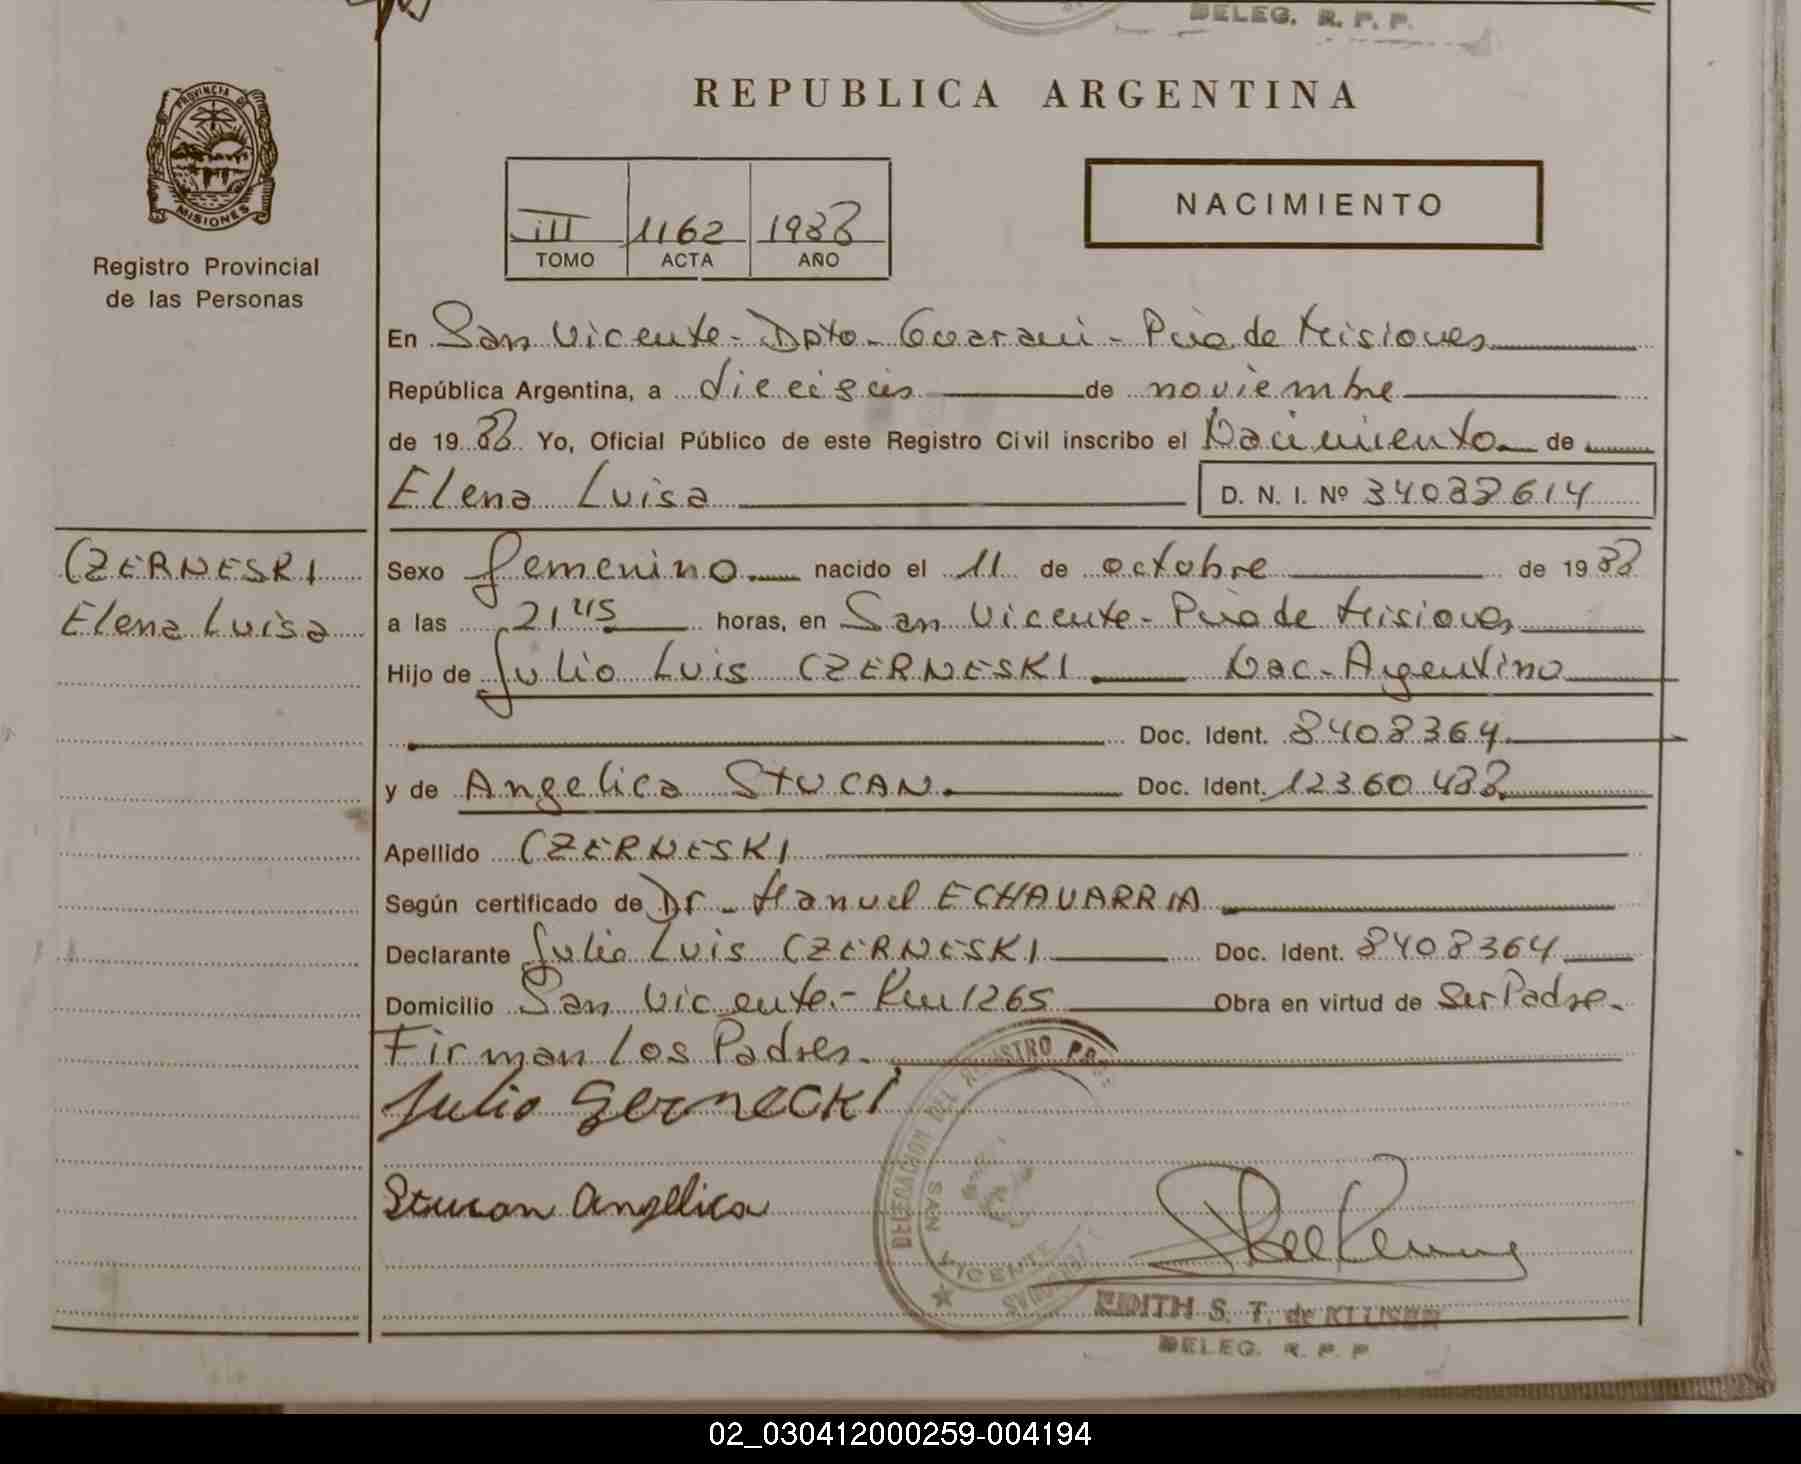 DELEG. R. P. P.
REPUBLICA ARGENTINA
PROVINCIA DE
MISIONES
Registro Provincial
de las Personas
III 1162 1988
TOMO ACTA AÑO
NACIMIENTO
En San Vicente - Dpto - Guarani - Pcia de Misiones
República Argentina, a dieciseis de noviembre
de 1988 Yo, Oficial Público de este Registro Civil inscribo el Nacimiento de
Elena Luisa D. N. I. Nº 34088614
CZERNESKI
Elena Luisa
Sexo femenino nacido el 11 de octubre de 1988
a las 21 45 horas, en San Vicente - Pcia de Misiones
Hijo de Julio Luis CZERNESKI Nac - Argentino
Doc. Ident. 8408364
y de Angelica STUCAN Doc. Ident. 12360488
Apellido CZERNESKI
Según certificado de Dr - Manuel ECHAVARRIA
Declarante Julio Luis CZERNESKI Doc. Ident. 8408364
Domicilio San Vicente - Km 1265 Obra en virtud de Ser Padre
Firman Los Padres.
Julio
Stucan Angelica
DELEGACION DEL REGISTRO
SAN VICENTE
EDITH S. T. de KLUSER
DELEG. R. P. P
02_030412000259-004194